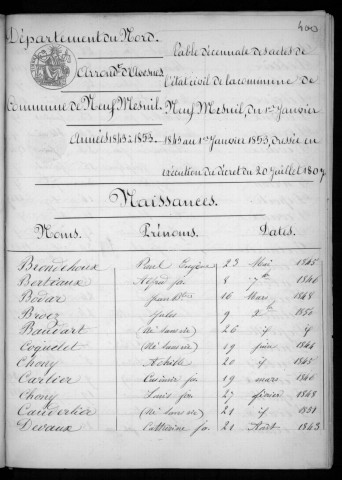 403
Département du Nord.
Arrond.t d'Avesnes
Commune de Neuf Mesnil.
Années 1843 à 1853.
Table décennale des actes de
l'état civil de la commune de
Neuf Mesnil, du 1er Janvier
1843 au 1er Janvier 1853, dressée en
exécution du décret du 20 Juillet 1807
Naissances.
Noms. Prénoms. Dates.
Brondehoux Paul Eugène 23 Mai 1845
Berteaux Alfred 8 7bre 1846
Bodar Jean Bte 16 Mars 1848
Broez Jules 9 1850
Baudart (Né sans vie) 26 if if
Coquelet (Né sans vie) 19 juin 1844
Chony Achille 20 if 1845
Cartier 19 mars 1846
Chony Louis 27 février 1848
Cauderlier (Né sans vie) 21 if 1851
Devaux Catherine 21 Août 1843